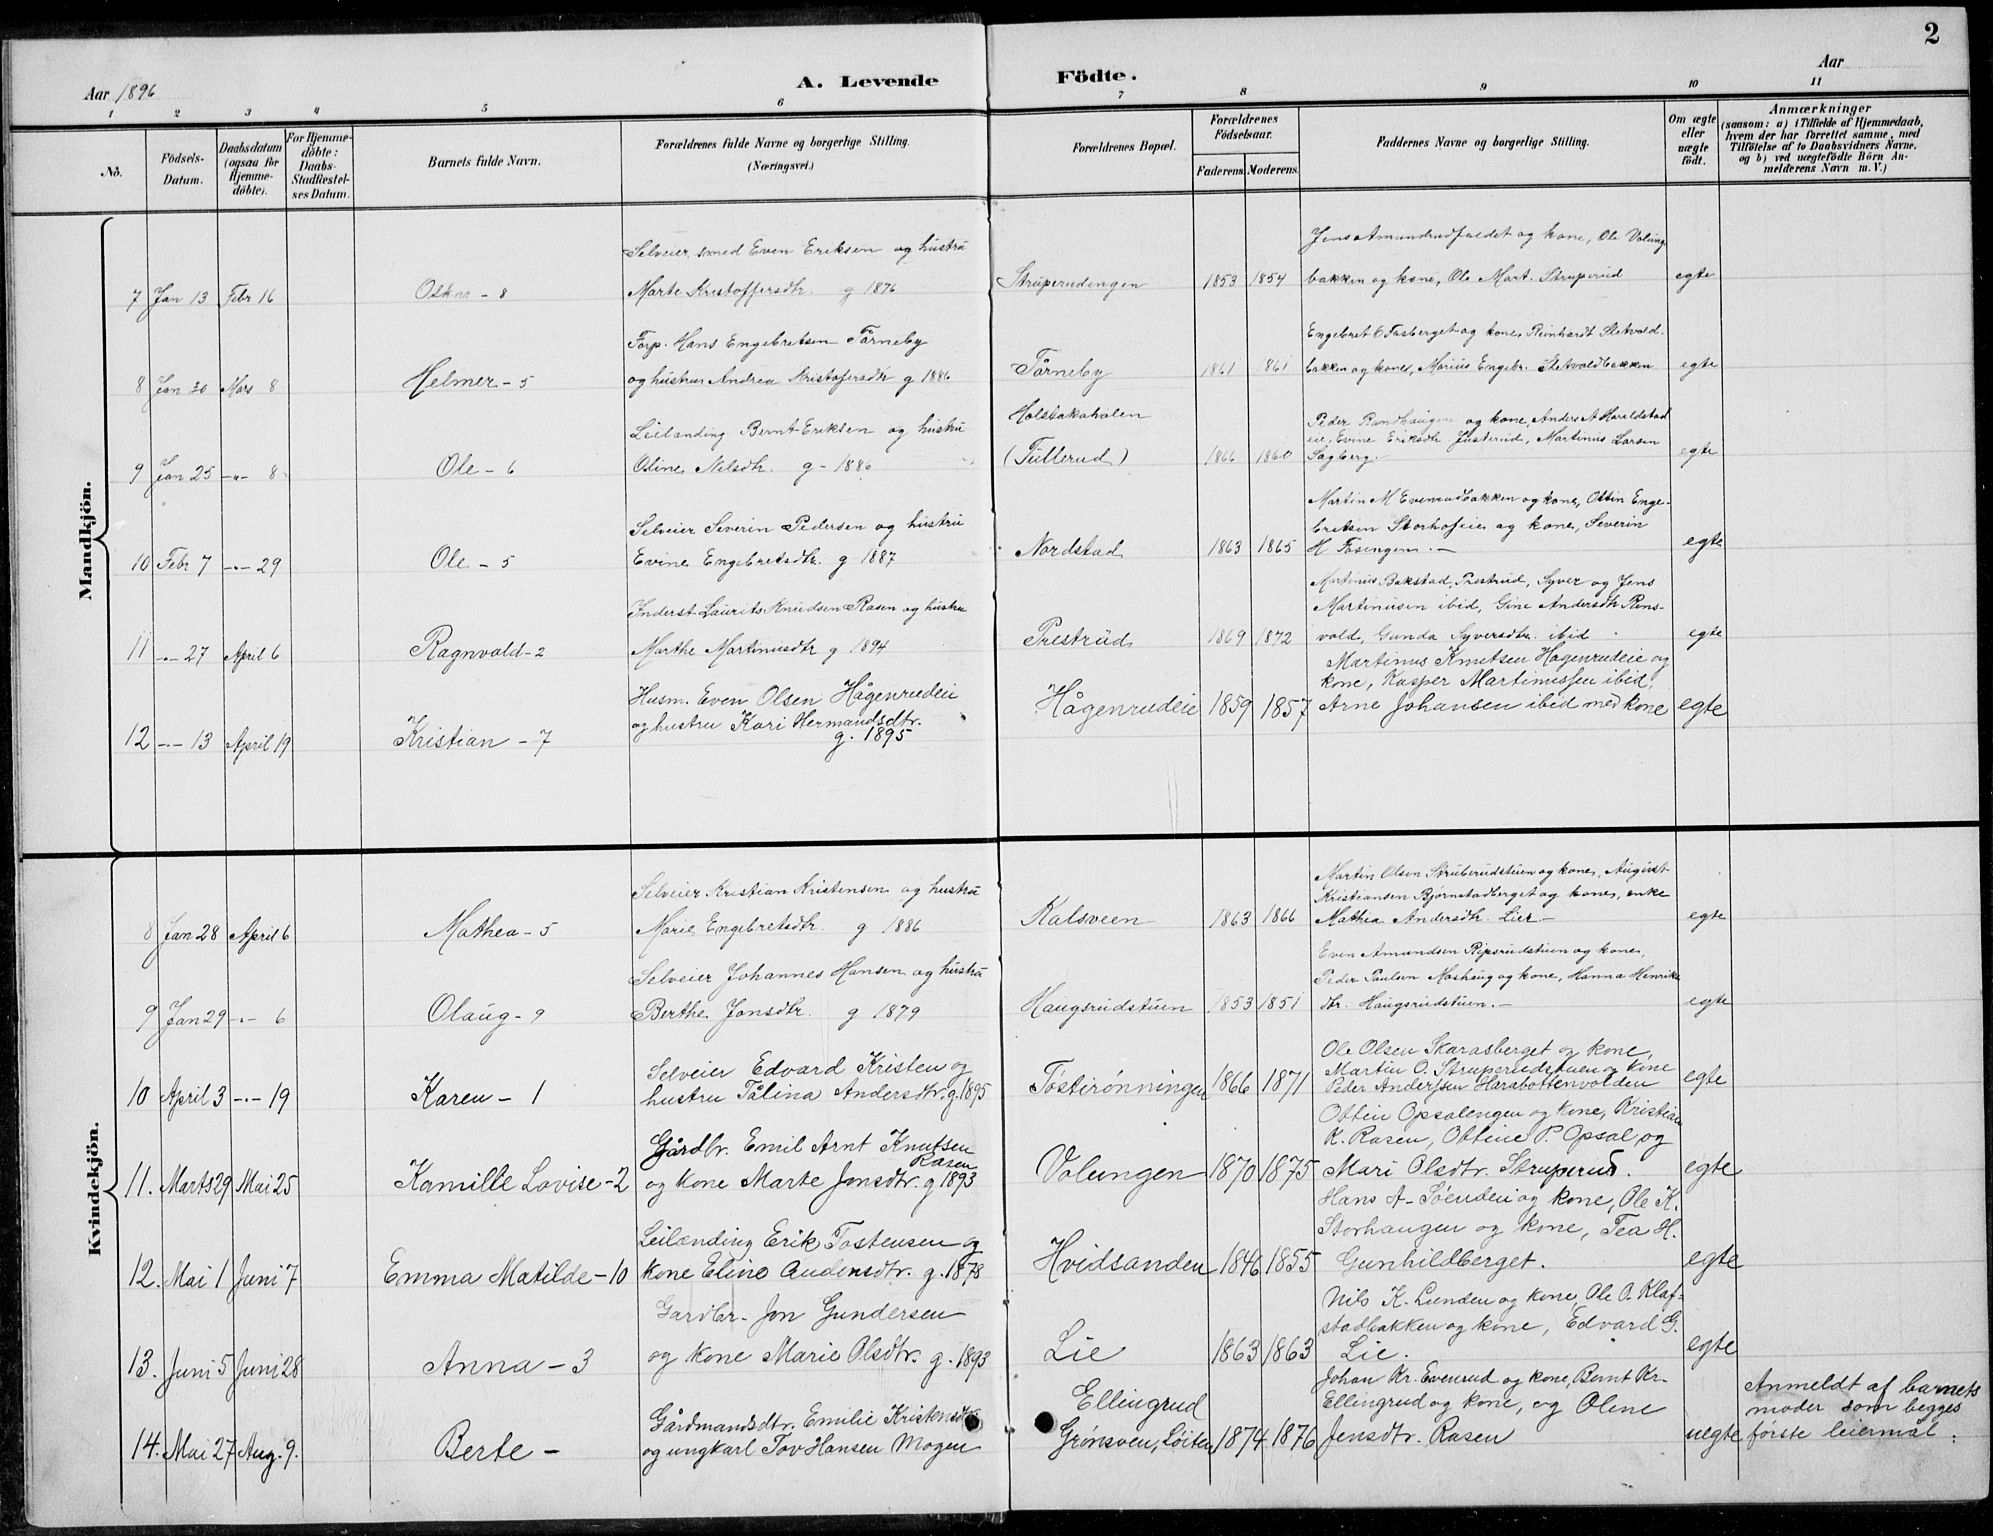 2
Aar 1896
A. Levende
Födte.
Aar
1 2 3 4 5 6 7 8 9 10 11
No.
Födsels-Datum.
Daabsdatum (ogsaa for Hjemmedöbte).
For Hjemmedöbte: Daabs-Stadfæstelses Datum.
Barnets fulde Navn.
Forældrenes fulde Navne og borgerlige Stilling. (Næringsvei.)
Forældrenes Bopæl.
Forældrenes Födselsaar.
Faderens. Moderens.
Faddernes Navne og borgerlige Stilling.
Om ægte eller uægte födt.
Anmærkninger
(saasom: a) i Tilfælde af Hjemmedaab,
hvem der har forrettet samme, med
Tilföielse af to Daabsvidners Navne,
og b) ved uægtefödte Börn An-
melderens Navn m. V.)
Mandkjön.
Selveier, smed Even Eriksen og hustru
Jens Amundrudfaldet og kone, Ole Volung
7 Jan 13 Febr 16
Oskar - 8
Marte Kristoffersdtr. g 1876
Struperudengen
1853 1854
bakken og kone, Ole Mart. Struperud
egte
Forp. Hans Engebretsen Tørneby
Engebret E Fosberget og kone, Reinhardt Sletvold-
8 Jan 20 Mars 8
Helmer - 5
og hustru Andrea Kristofersdtr g 1886
Tørneby
1861 1861
bakken og kone, Marius Engebr. Sletvoldbakken
egte
Leilænding Bernt Eriksen og hustru
Holstakaholen
Peder Rundhaugen og kone, Anders A Haraldstad
eie, Evine Eriksdtr Justerud, Martinus Larsen
9 Jan 25 -"- 8
Ole - 6
Oline Nilsdtr. g - 1886
(Tullerud)
1866 1860
Sagberg.
egte
Selveier Severin Pedersen og hustru
Martin M Evenrudbakken og kone, Ottin Enge-
bretsen Storhofeie og kone, Severin
10 Febr 7 -"- 29
Ole - 5
Evine Engebretsdtr. g 1887
Nordstad
1863 1865
H Fosengen. -
egte
Inderst Laurits Knudsen Rasen og hustru
Martinus Bakstad, Prestrud, Syver og Jens
Martinusen ibid, Gine Andersdtr Rens-
11 -"- 27 April 6
Ragnvald - 2
Marthe Martinusdtr g 1894
Prestrud
1869 1872
vold, Gunda Syversdtr. ibid
egte
Husm. Even Olsen Hågenrudeie
Martinus Knutsen Hågenrudeie og
kone, Kasper Martinussen ibid,
12 -"- 13 April 19
Kristian - 7
og hustru Kari Hermandsdtr.
g. 1895
Hågenrudeie
1859 1857
Arne Johansen ibid med kone
egte
Kvindekjön.
Selveier Kristian Kristensen og hustru
Martin Olsen Struberudstuen og kone, August
Kristiansen Bjørnstadberget og kone, enke
8 Jan 28 April 6
Mathea - 5
Marie Engebretsdtr. g 1886
Kalsveen
1863 1866
Mathea Andersdtr. Lier -
egte
Selveier Johannes Hansen og hustru
Even Amundsen Ripsrudstuen og kone,
Peder Paulsen Moshaug og kone, Hanna Henriks
9 Jan 29 -"- 6
Olaug - 9
Berthe Jonsdtr. g 1879
Haugsrudstuen
1853 1851
dtr. Haugsrudstuen. -
egte
Selveier Edvard Kristen og
Ole Olsen Skarasberget og kone,
Martin O. Struperudstuen og kone
10 April 3 -"- 19
Karen - 1
hustru Tålina Andersdtr. g. 1895
Tøstirønningen
1866 1871
Peder Anderssen Harabottenvolden
egte
Gårdbr. Emil Arnt Knutsen
Rasen
Ottin Opsalengen og kone, Kristian
K. Rasen, Ottine P. Opsal og
11. Marts 29 Mai 25
Kamille Lovise - 2
og kone Marte Jonsdtr. g 1893
Volungen
1870 1875
Mari Olsdtr. Struperud.
egte
Leilænding Erik Tostensen og
Hans A- Søeneie og kone, Ole K.
Storhaugen og kone, Tea H.
12. Mai 1 Juni 7
Emma Matilde - 10
kone Eline Audensdtr. g. 1878
Hvidsanden
1846 1855
Gunhildberget.
egte
Gardbr. Jon Gundersen
Nils K. Lunden og kone, Ole O. Klaf-
stadbakken og kone, Edvard G.
13. Juni 5 Juni 28
Anna - 3
og kone Marie Olsdtr. g. 1893
Lie
1863 1863
Lie.
egte
Gårdmandsdtr. Emilie Kristensdtr
Ellingrud
Johan Kr. Evenrud og kone, Bernt Kr-
Ellingrud og kone, og Oline
Anmeldt af barnets
moder som begges
14. Mai 27 Aug. 9.
Berte -
og ungkarl Tov Hansen Mogen
Grønsven, Løiten
1874 1876
Jensdtr. Rasen
uegte
første leiermål.